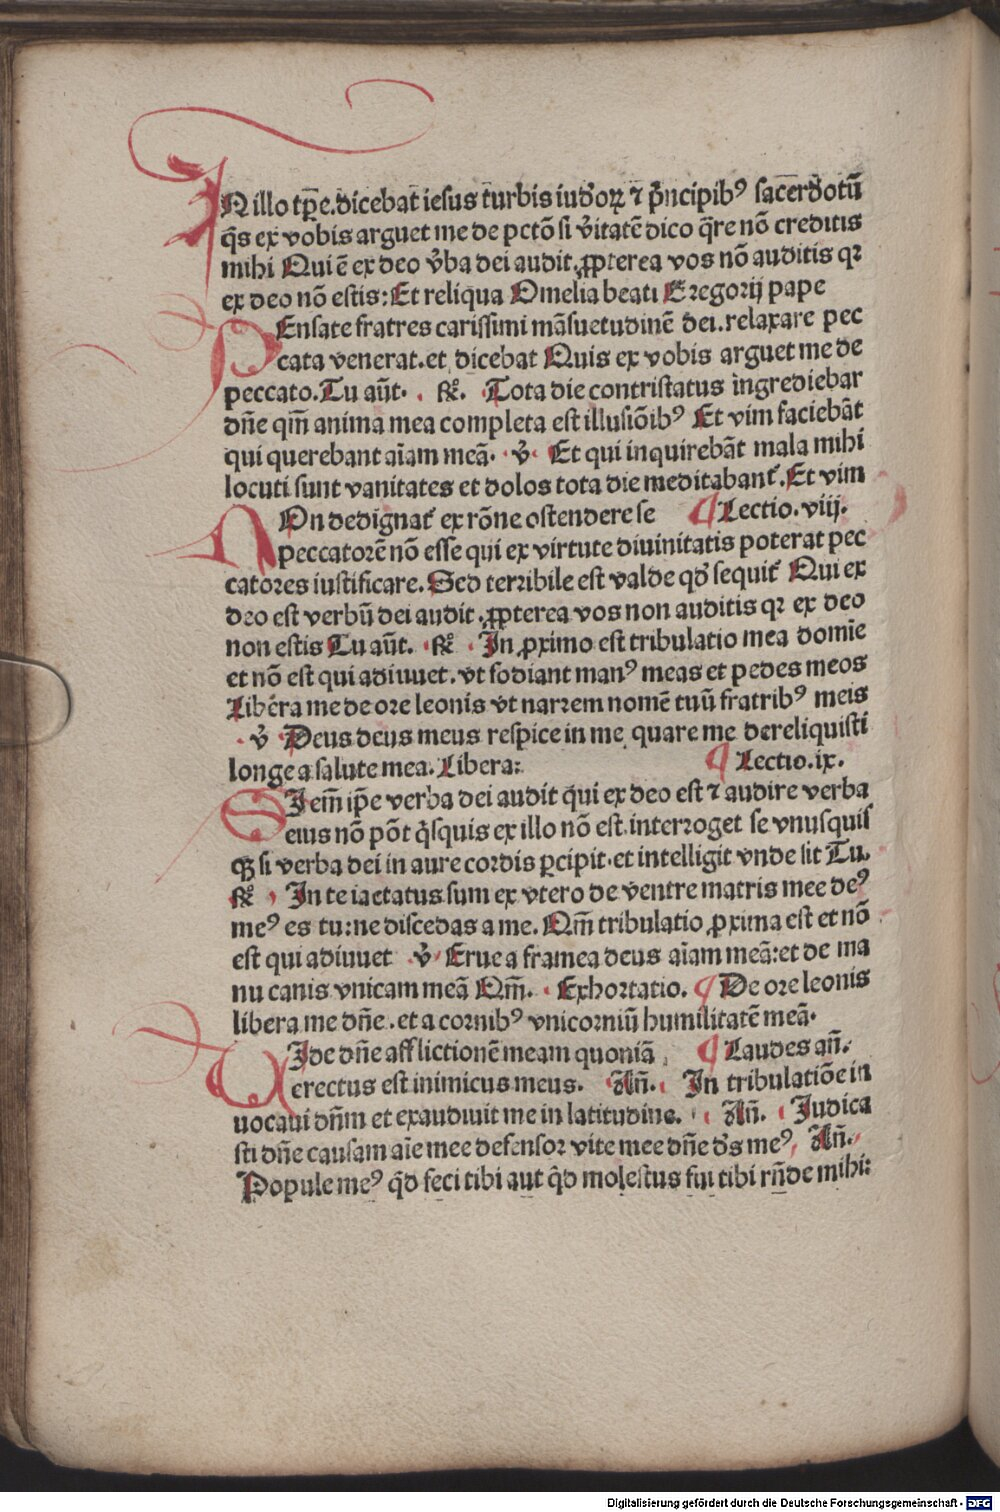 IN illo tp̄e. dicebat iesus turbis iud'oꝝ ⁊ p̄ncipibꝰ sacerdotū
q̄s ex vobis arguet me de pctō si v̄itatē dico q̄re nō creditis
mihi Qui ē ex deo v̄ba dei audit. ꝓpterea vos nō auditis qꝛ
ex deo nō estis: Et reliqua Omelia beati Gregorij pape
PEnsate fratres carissimi māsuetudinē dei. relaxare pec
cata venerat. et dicebat Quis ex vobis arguet me de
peccato. Tu aūt. ℟. Tota die contristatus ingrediebar
dn̄e qm̄ anima mea completa est illusiōibꝰ Et vim faciebāt
qui querebant aīam meā. ℣ Et qui inquirebāt mala mihi
locuti sunt vanitates et dolos tota die meditabant᷑. Et vim
NOn dedignat᷑ ex rōne ostendere se ¶ Lectio. viij.
peccatorē nō esse qui ex virtute diuinitatis poterat pec
catores iustificare. Sed terribile est valde qd̄ sequit᷑ Qui ex
deo est verbū dei audit. ꝓpterea vos non auditis qꝛ ex deo
non estis Tu aūt. ℟ In ꝓximo est tribulatio mea domīe
et nō est qui adiuuet. vt fodiant manꝰ meas et pedes meos
Libēra me de ore leonis vt narrem nomē tuū fratribꝰ meis
℣ Deus deus meus respice in me quare me dereliquisti
longe a salute mea. Libera: ¶ Lectio. ix.
SIem̄ ip̄e verba dei audit qui ex deo est ⁊ audire verba
eius nō pōt q̄squis ex illo nō est. interroget se vnusquis
qꝫ si verba dei in aure cordis ꝑcipit. et intelligit vnde sit Tu.
℟ In te iactatus sum ex vtero de ventre matris mee deꝰ
meꝰ es tu: ne discedas a me. Qm̄ tribulatio ꝓxima est et nō
est qui adiuuet ℣ Erue a framea deus aīam meā: et de ma
nu canis vnicam meā Qm̄. Exhortatio. ¶ De ore leonis
libera me dn̄e. et a cornibꝰ vnicorniū humilitatē meā.
VIde dn̄e afflictionē meam quoniā ¶ Laudes an̄.
erectus est inimicus meus. An̄. In tribulatiōe in
uocaui dn̄m et exaudiuit me in latitudine. An̄. Iudica
sti dn̄e causam aīe mee defensor vite mee dn̄e d̄s meꝰ, An̄.
Popule meꝰ q̄d feci tibi aut q̄d molestus fui tibi rn̄de mihi:
Digitalisierung gefördert durch die Deutsche Forschungsgemeinschaft - DFG